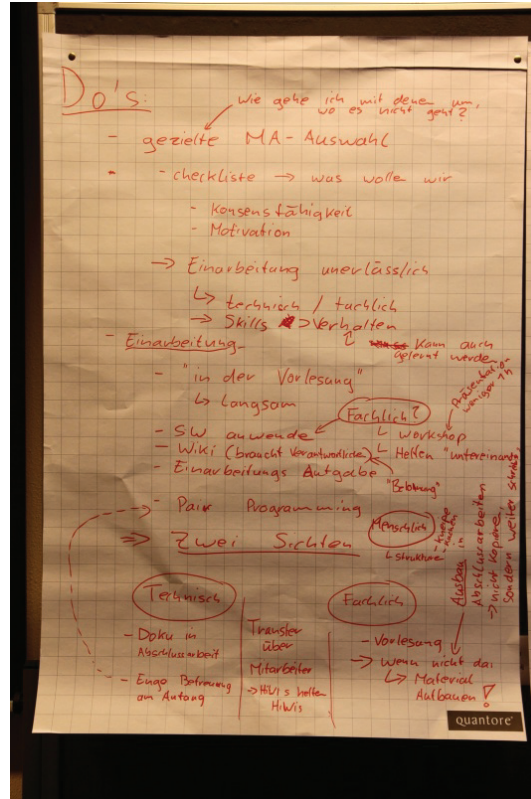 Do's:
wie gehe ich mit denen um,
wo es nicht geht?
- gezielte MA-Auswahl
- - checkliste → was wolle wir
- Konsensfähigkeit
- Motivation
→ Einarbeitung unerlässlich
↳ technisch / fachlich
→ Skills > Verhalten
Kann auch
gelernt werde
- Einarbeitung
- "in der Vorlesung"
↳ Langsam
Fachlich?
Präsentation
weniger
- SW anwende
└ Workshop
- Wiki (braucht Verantwortliche)
└ Helfen "untereinand
- Einarbeitungs Aufgabe
"Belohnung"
- Pair Programming
Menschlich
- Kneipe
- Kochen
└ Struktur
⇒ Zwei Sichten
Ausbau in
Abschlussarbeiten
→ nicht kopieren,
sondern weiter schreibe
Technisch
- Doku in
Abschlussarbeit
- Enge Betreuung
am Anfang
Transfer
über
Mitarbeiter
→ HiWis helfen
HiWis
Fachlich
- Vorlesung
→ wenn nicht da:
↳ Material
Aufbauen!
quantore